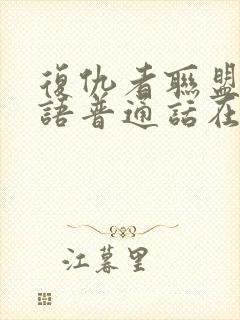 復仇者聯盟
語普通話在
江暮里